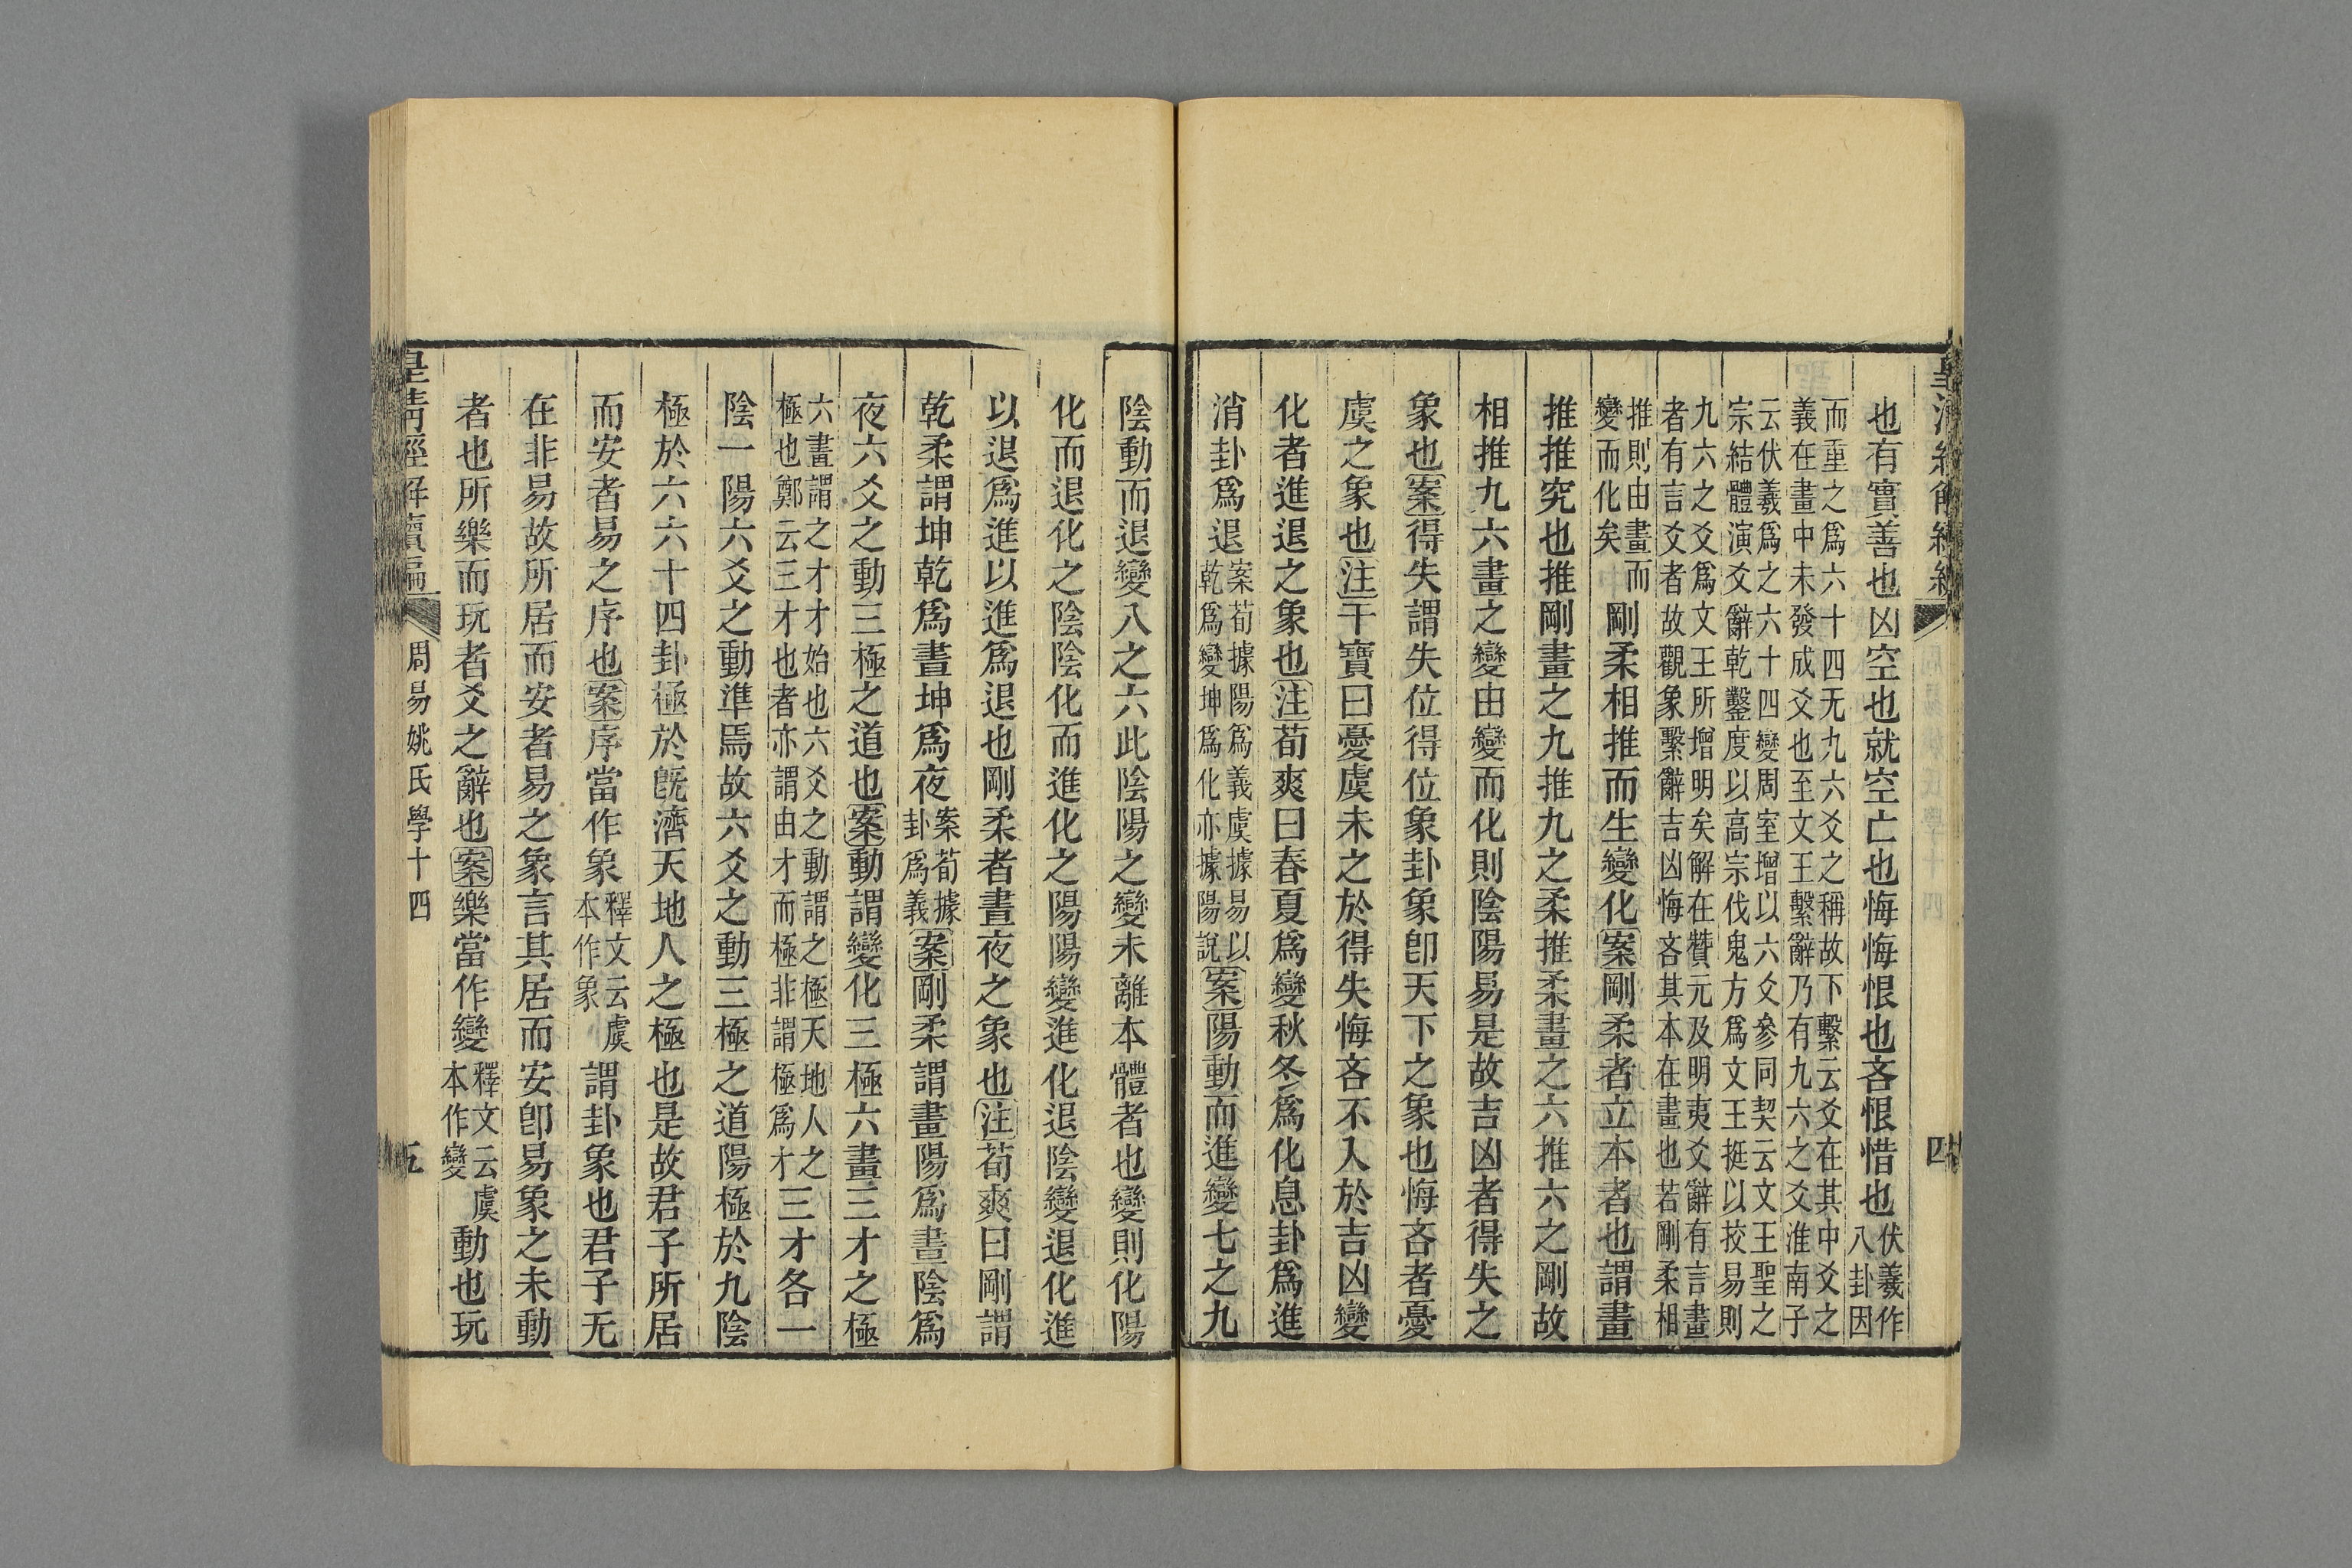 也有實善也凶空也就空亡也悔悔恨也吝恨惜也伏羲作八卦因
而重之爲六十四无九六爻之稱故下繫云爻在其中爻之
義在畫中未發成爻也至文王繫辭乃有九六之爻淮南子
云伏羲爲之六十四變周室增以六爻參同契云文王聖之
宗結體演爻辭乾鑿度以高宗伐鬼方爲文王挺以挍易則
九六之爻爲文王所增明矣解在贊元及明夷爻辭有言畫
者有言爻者故觀象繫辭吉凶悔吝其本在畫也若剛柔相
推則由畫而變而化矣剛柔相推而生變化案剛柔者立本者也謂畫
推推究也推剛畫之九推九之柔推柔畫之六推六之剛故
相推九六畫之變由變而化則陰陽易是故吉凶者得失之
象也案得失謂失位得位象卦象卽天下之象也悔吝者憂
虞之象也注干寶曰憂虞未之於得失悔吝不入於吉凶變
化者進退之象也注荀爽曰春夏爲變秋冬爲化息卦爲進
消卦爲退案荀據陽爲義虞據易以乾爲變坤爲化亦據陽說案陽動而進變七之九
四
陰動而退變八之六此陰陽之變未離本體者也變則化陽
化而退化之陰陰化而進化之陽陽變進化退陰變退化進
以退爲進以進爲退也剛柔者晝夜之象也注荀爽曰剛謂
乾柔謂坤乾爲晝坤爲夜案荀據卦爲義案剛柔謂畫陽爲晝陰爲
夜六爻之動三極之道也案動謂變化三極六畫三才之極
六畫謂之才才始也六爻之動謂之極天地人之
極也鄭云三才也者亦謂由才而極非謂極爲才三才各一
陰一陽六爻之動準焉故六爻之動三極之道陽極於九陰
極於六六十四卦極於旣濟天地人之極也是故君子所居
而安者易之序也案序當作象釋文云虞本作象謂卦象也君子无
在非易故所居而安者易之象言其居而安卽易象之未動
者也所樂而玩者爻之辭也案樂當作變釋文云虞本作變動也玩
皇清經解續編
周易姚氏學十四
五